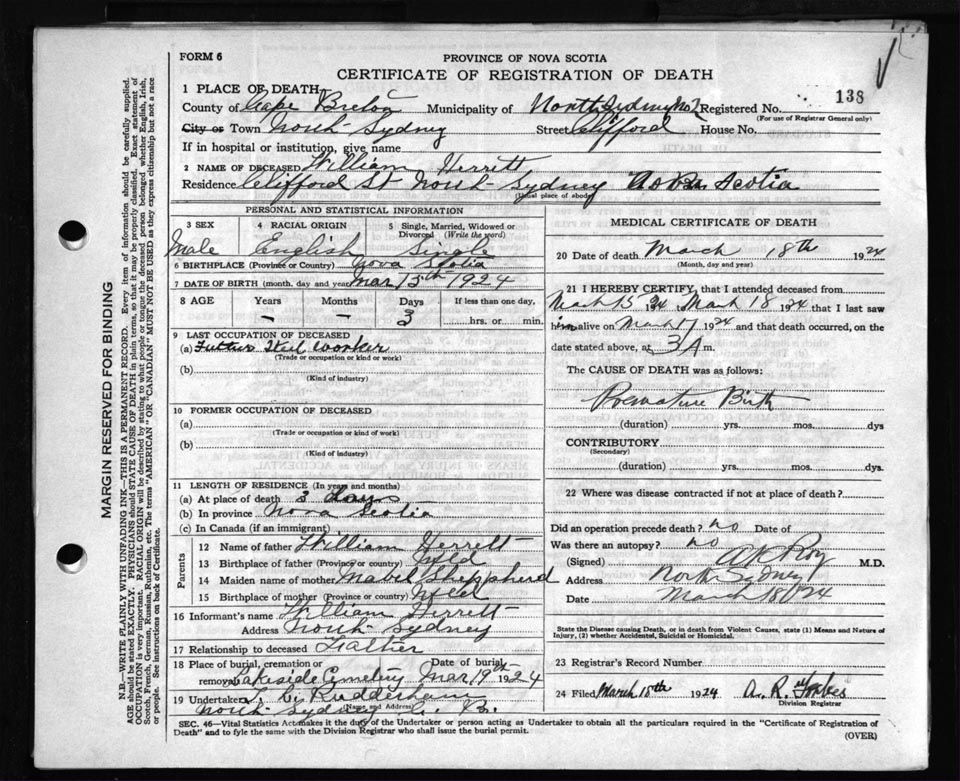 FORM 6
PROVINCE OF NOVA SCOTIA
CERTIFICATE OF REGISTRATION OF DEATH
1 PLACE OF DEATH
County of Cape Breton Municipality of North Sydney No 2 Registered No. 138
(For use of Registrar General only)
City or Town North Sydney Street Clifford House No.
If in hospital or institution, give name
2 NAME OF DECEASED William Herrett
Residence Clifford St North Sydney Nova Scotia
(Usual place of abode)
PERSONAL AND STATISTICAL INFORMATION
3 SEX
Male
4 RACIAL ORIGIN
English
5 Single, Married, Widowed or Divorced (Write the word)
Single
6 BIRTHPLACE (Province or Country) Nova Scotia
7 DATE OF BIRTH (month, day and year) Mar 15th 1924
8 AGE Years Months Days If less than one day,
– – 3 hrs. or min.
9 LAST OCCUPATION OF DECEASED
(a) Father Steel Worker
(Trade or occupation or kind or work)
(b)
(Kind of industry)
10 FORMER OCCUPATION OF DECEASED
(a)
(Trade or occupation or kind of work)
(b)
(Kind of industry)
11 LENGTH OF RESIDENCE (In years and months)
(a) At place of death 3 days
(b) In province Nova Scotia
(c) In Canada (if an immigrant)
Parents
12 Name of father William Herrett
13 Birthplace of father (Province or country) Nfld
14 Maiden name of mother Mabel Sheppherd
15 Birthplace of mother (Province or country) Nfld
16 Informant's name William Herrett
Address North Sydney
17 Relationship to deceased Father
18 Place of burial, cremation or removal Lakeside Cemetery Date of burial Mar 19th 1924
19 Undertaker
(Name and Address)
North Sydney C. B.
MEDICAL CERTIFICATE OF DEATH
20 Date of death March 18th 1924
(Month, day and year)
21 I HEREBY CERTIFY, that I attended deceased from
March 15 1924 March 18 1924 that I last saw
him alive on March 17 1924 and that death occurred, on the
date stated above, at 3 A m.
The CAUSE OF DEATH was as follows:
Premature Birth
(duration) yrs. mos. dys
CONTRIBUTORY
(Secondary)
(duration) yrs. mos. dys.
22 Where was disease contracted if not at place of death?
Did an operation precede death? no Date of
Was there an autopsy? no
(Signed) Roy M.D.
Address North Sydney
Date March 18/24
State the Disease causing Death, or in death from Violent Causes, state (1) Means and Nature of
Injury, (2) whether Accidental, Suicidal or Homicidal.
23 Registrar's Record Number
24 Filed March 18th 1924 A. R. Forbes
Division Registrar
SEC. 46—Vital Statistics Act makes it the duty of the Undertaker or person acting as Undertaker to obtain all the particulars required in the "Certificate of Registration of
Death" and to fyle the same with the Division Registrar who shall issue the burial permit.
(OVER)
MARGIN RESERVED FOR BINDING
N.B.—WRITE PLAINLY WITH UNFADING INK—THIS IS A PERMANENT RECORD. Every item of information should be carefully supplied.
AGE should be stated EXACTLY. PHYSICIANS should STATE CAUSE OF DEATH in plain terms, so that it may be properly classified. Exact statement of
OCCUPATION is very important. RACIAL ORIGIN will be described by stating to what people or tongue the deceased person belonged whether English, Irish,
Scotch, French, German, Russian, Ruthenian, etc. The terms "AMERICAN" OR "CANADIAN" MUST NOT BE USED as they express citizenship but not a race
or people. See instructions on back of Certificate.